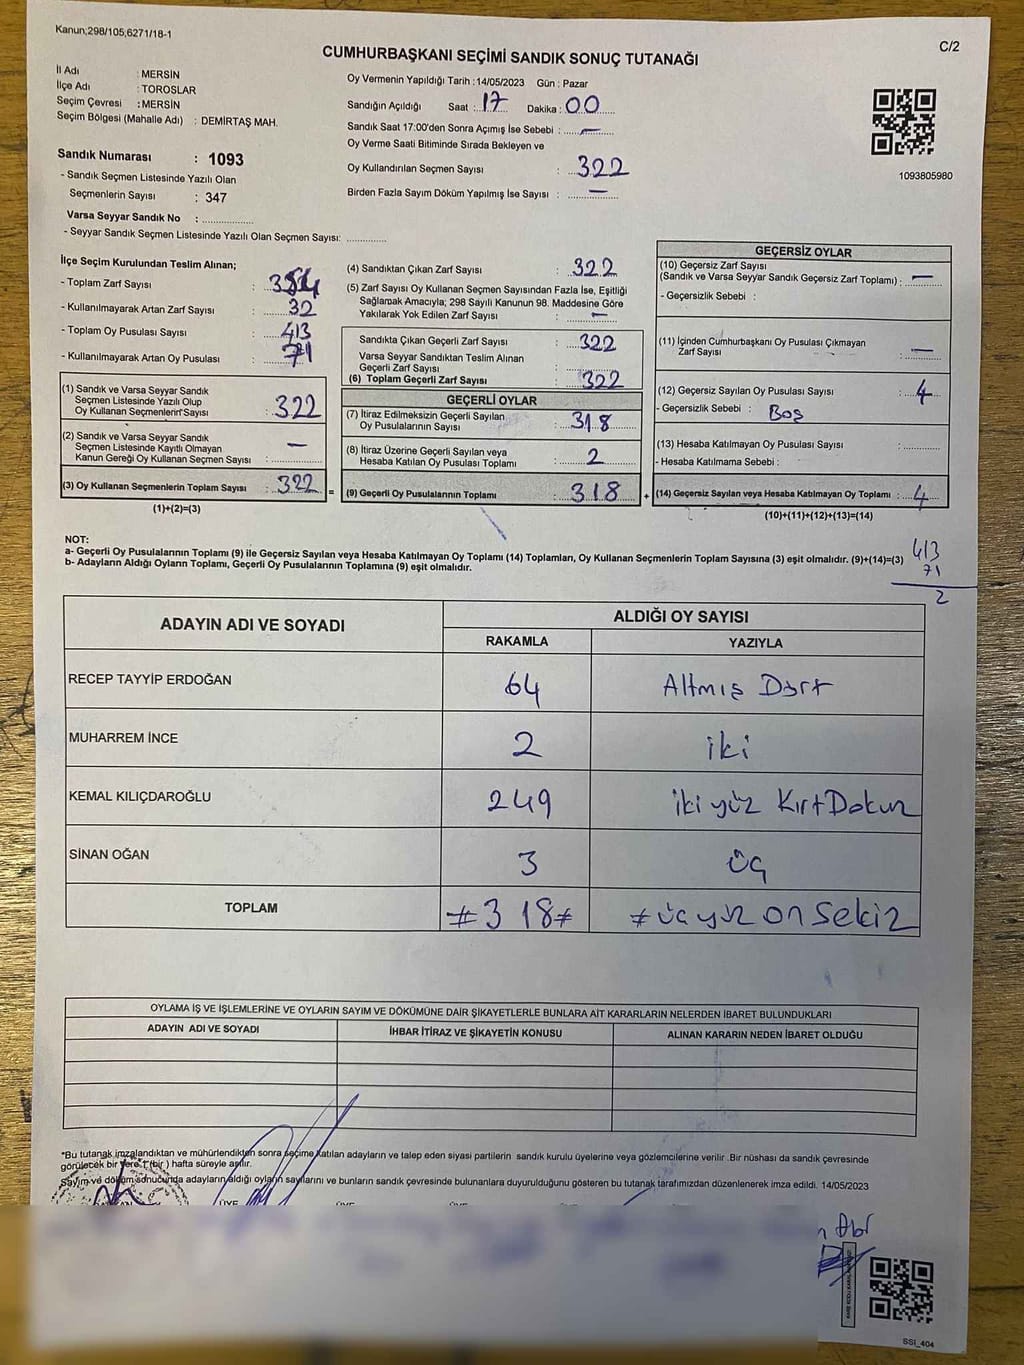 Kanun;298/105,6271/18-1
C/2
CUMHURBAŞKANI SEÇİMİ SANDIK SONUÇ TUTANAĞI
İl Adı : MERSİN
İlçe Adı : TOROSLAR
Seçim Çevresi : MERSİN
Seçim Bölgesi (Mahalle Adı) : DEMİRTAŞ MAH.
Sandık Numarası : 1093
- Sandık Seçmen Listesinde Yazılı Olan
Seçmenlerin Sayısı : 347
Varsa Seyyar Sandık No :
- Seyyar Sandık Seçmen Listesinde Yazılı Olan Seçmen Sayısı:
Oy Vermenin Yapıldığı Tarih : 14/05/2023 Gün : Pazar
Sandığın Açıldığı Saat : 17 Dakika : 00
Sandık Saat 17:00'den Sonra Açımış İse Sebebi : —
Oy Verme Saati Bitiminde Sırada Bekleyen ve
Oy Kullandırılan Seçmen Sayısı : 322
Birden Fazla Sayım Döküm Yapılmış İse Sayısı : —
1093805980
İlçe Seçim Kurulundan Teslim Alınan;
- Toplam Zarf Sayısı : 354
- Kullanılmayarak Artan Zarf Sayısı : 32
- Toplam Oy Pusulası Sayısı : 413
- Kullanılmayarak Artan Oy Pusulası : 71
(1) Sandık ve Varsa Seyyar Sandık
Seçmen Listesinde Yazılı Olup
Oy Kullanan Seçmenlerin Sayısı : 322
(2) Sandık ve Varsa Seyyar Sandık
Seçmen Listesinde Kayıtlı Olmayan
Kanun Gereği Oy Kullanan Seçmen Sayısı : —
(3) Oy Kullanan Seçmenlerin Toplam Sayısı : 322 =
(1)+(2)=(3)
(4) Sandıktan Çıkan Zarf Sayısı : 322
(5) Zarf Sayısı Oy Kullanan Seçmen Sayısından Fazla İse, Eşitliği
Sağlamak Amacıyla; 298 Sayılı Kanunun 98. Maddesine Göre
Yakılarak Yok Edilen Zarf Sayısı : —
Sandıkta Çıkan Geçerli Zarf Sayısı : 322
Varsa Seyyar Sandıktan Teslim Alınan
Geçerli Zarf Sayısı :
(6) Toplam Geçerli Zarf Sayısı : 322
GEÇERLİ OYLAR
(7) İtiraz Edilmeksizin Geçerli Sayılan
Oy Pusulalarının Sayısı : 318
(8) İtiraz Üzerine Geçerli Sayılan veya
Hesaba Katılan Oy Pusulası Toplamı : 2
(9) Geçerli Oy Pusulalarının Toplamı : 318 +
GEÇERSİZ OYLAR
(10) Geçersiz Zarf Sayısı
(Sandık ve Varsa Seyyar Sandık Geçersiz Zarf Toplamı) : —
- Geçersizlik Sebebi :
(11) İçinden Cumhurbaşkanı Oy Pusulası Çıkmayan
Zarf Sayısı : —
(12) Geçersiz Sayılan Oy Pusulası Sayısı : 4
- Geçersizlik Sebebi : Boş
(13) Hesaba Katılmayan Oy Pusulası Sayısı :
- Hesaba Katılmama Sebebi :
(14) Geçersiz Sayılan veya Hesaba Katılmayan Oy Toplamı : 4
(10)+(11)+(12)+(13)=(14)
NOT:
a- Geçerli Oy Pusulalarının Toplamı (9) ile Geçersiz Sayılan veya Hesaba Katılmayan Oy Toplamı (14) Toplamları, Oy Kullanan Seçmenlerin Toplam Sayısına (3) eşit olmalıdır. (9)+(14)=(3)
b- Adayların Aldığı Oyların Toplamı, Geçerli Oy Pusulalarının Toplamına (9) eşit olmalıdır.
413
71
2
ADAYIN ADI VE SOYADI
ALDIĞI OY SAYISI
RAKAMLA YAZIYLA
RECEP TAYYİP ERDOĞAN 64 Altmış Dört
MUHARREM İNCE 2 iki
KEMAL KILIÇDAROĞLU 249 iki yüz KırtDokuz
SİNAN OĞAN 3 üç
TOPLAM #318# #üç yüz on sekiz
OYLAMA İŞ VE İŞLEMLERİNE VE OYLARIN SAYIM VE DÖKÜMÜNE DAİR ŞİKAYETLERLE BUNLARA AİT KARARLARIN NELERDEN İBARET BULUNDUKLARI
ADAYIN ADI VE SOYADI İHBAR İTİRAZ VE ŞİKAYETİN KONUSU ALINAN KARARIN NEDEN İBARET OLDUĞU
*Bu tutanak imzalandıktan ve mühürlendikten sonra seçime katılan adayların ve talep eden siyasi partilerin sandık kurulu üyelerine veya gözlemcilerine verilir .Bir nüshası da sandık çevresinde
görülecek bir yere 1 (bir ) hafta süreyle asılır.
Sayım ve döküm sonucunda adayların aldığı oyların sayılarını ve bunların sandık çevresinde bulunanlara duyurulduğunu gösteren bu tutanak tarafımızdan düzenlenerek imza edildi. 14/05/2023
SSİ_404